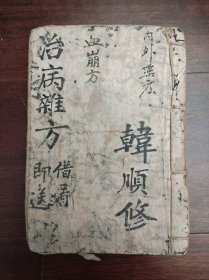 內外雜方
血崩方
韓順修
治病雜方
借看
即送